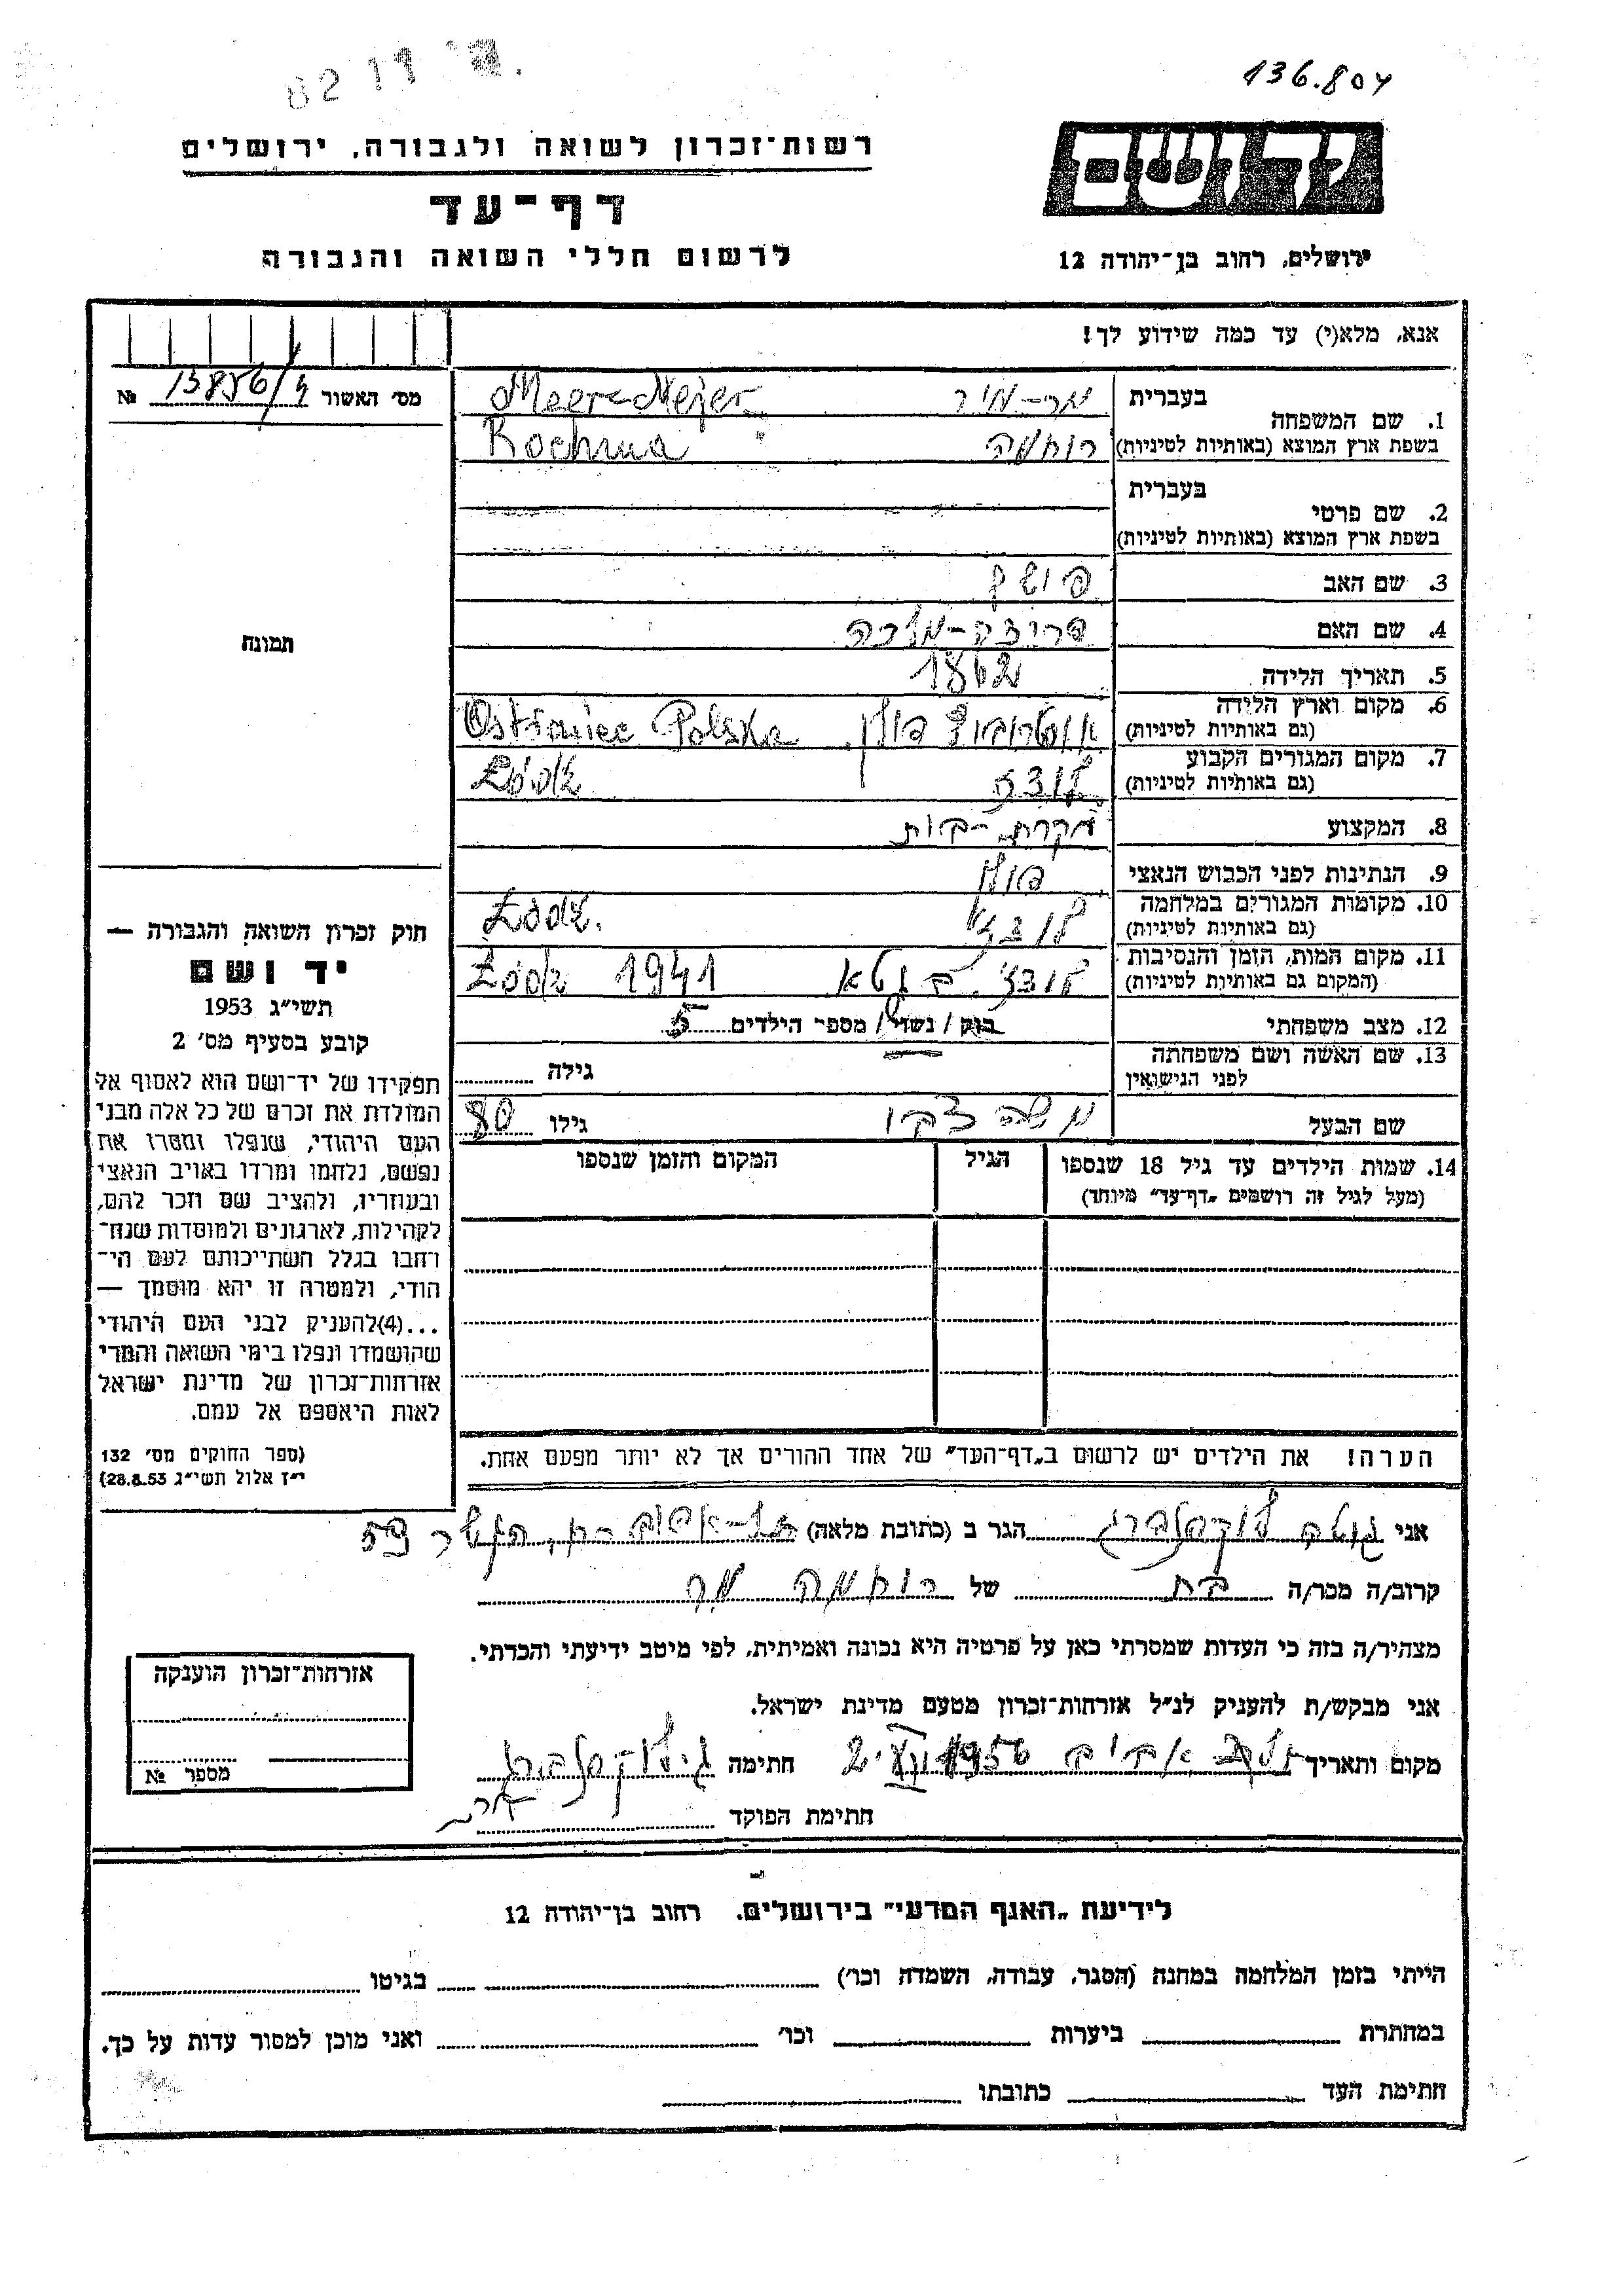 136.804
רשות־זכרון לשואה ולגבורה, ירושלים
דף־עד
לרשום חללי השואה והגבורה
יד ושם
ירושלים, רחוב בן־יהודה 12
אנא, מלא(י) עד כמה שידוע לך!
מס׳ האשור 13856/4 №
תמונה
1. שם המשפחה בעברית מר-מיר Meer-Mejer
בשפת ארץ המוצא (באותיות לטיניות) רוחמה Rochma
2. שם פרטי בעברית
בשפת ארץ המוצא (באותיות לטיניות)
3. שם האב
4. שם האם
5. תאריך הלידה 1862
6. מקום וארץ הלידה
(גם באותיות לטיניות) פולין Polska
7. מקום המגורים הקבוע
(גם באותיות לטיניות) לודז Łódź
8. המקצוע עקרת-בית
9. הנתינות לפני הכבוש הנאצי פולין
10. מקומות המגורים במלחמה
(גם באותיות לטיניות) לודז Łódź.
11. מקום המות, הזמן והנסיבות
(המקום גם באותיות לטיניות) לודז. בגטא 1941 Łódź
12. מצב משפחתי רוק / נשוי / מספר הילדים 5
13. שם האשה ושם משפחתה
לפני הנישואין גילה
שם הבעל משה צבי גילו 80
14. שמות הילדים עד גיל 18 שנספו
(מעל לגיל זה רושמים „דף־עד״ מיוחד)
הגיל
המקום והזמן שנספו
חוק זכרון השואה והגבורה —
יד ושם
תשי״ג 1953
קובע בסעיף מס׳ 2
תפקידו של יד־ושם הוא לאסוף אל
המולדת את זכרם של כל אלה מבני
העם היהודי, שנפלו ומסרו את
נפשם, נלחמו ומרדו באויב הנאצי
ובעוזריו, ולהציב שם וזכר להם,
לקהילות, לארגונים ולמוסדות שנח־
רחבו בגלל השתייכותם לעם הי־
הודי, ולמטרה זו יהא מוסמך —
...(4)להעניק לבני העם היהודי
שהושמדו ונפלו בימי השואה והמרי
אזרחות־זכרון של מדינת ישראל
לאות היאספם אל עמם.
(ספר החוקים מס׳ 132
י״ז אלול תשי״ג 28.8.53)
הערה! את הילדים יש לרשום ב„דף־העד״ של אחד ההורים אך לא יותר מפעם אחת.
אני הגר ב (כתובת מלאה)
קרוב/ה מכר/ה בת של רוחמה מר
מצהיר/ה בזה כי העדות שמסרתי כאן על פרטיה היא נכונה ואמיתית, לפי מיטב ידיעתי והכרתי.
אני מבקש/ת להעניק לנ״ל אזרחות־זכרון מטעם מדינת ישראל.
מקום ותאריך תל אביב 1956 חתימה
חתימת הפוקד
אזרחות־זכרון הוענקה
מספר №
לידיעת „האגף המדעי״ בירושלים. רחוב בן־יהודה 12
הייתי בזמן המלחמה במחנה (הסגר, עבודה, השמדה וכו׳) בגיטו
במחתרת ביערות וכו׳ ואני מוכן למסור עדות על כך.
חתימת העד כתובתו